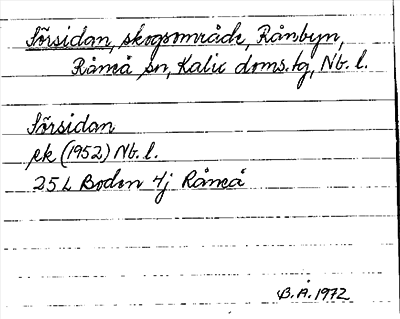 Sörsidan, skogsområde, Rånbyn,
Råneå sn, Kalix doms.tg, Nb. l.
Sörsidan
ek (1952) Nb. l.
25 L Boden 4j Råneå
B.Å. 1972